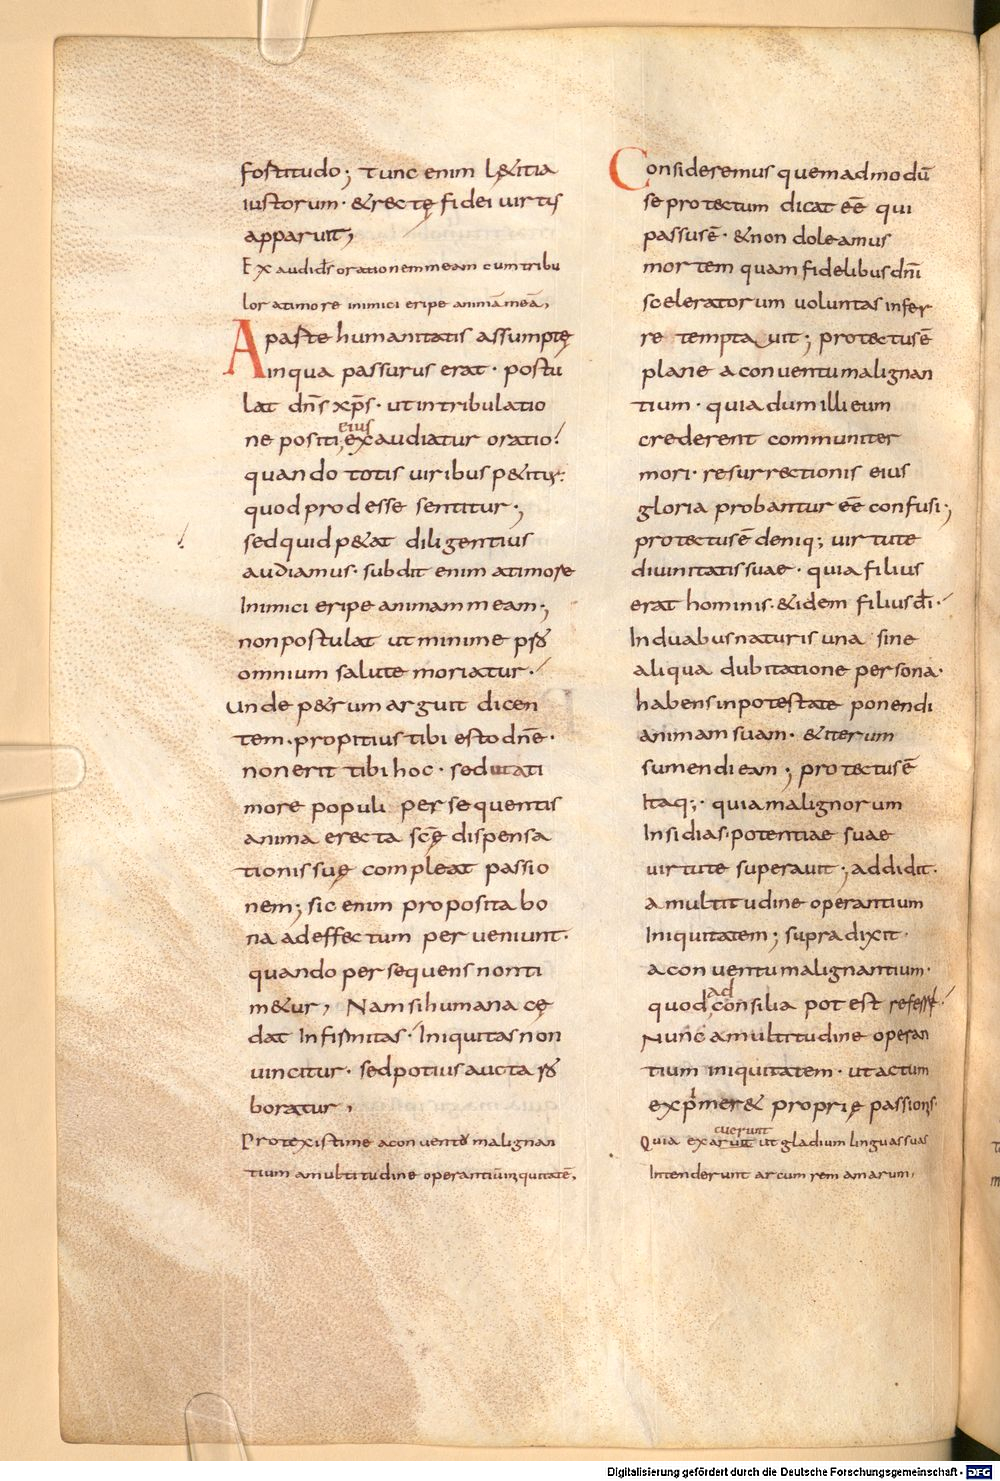 fortitudo; Tunc enim l&itia
iustorum· &rectę fidei uirtus
apparuit;
Exaudi ds orationem meam cum tribu
lor a timore inimici eripe animā meā;
A parte humanitatis assumptę
in qua passurus erat· postu
lat dn̄s xp̄s· ut in tribulatio
ne positi eius exaudiatur oratio!
quando totis uiribus p&itur:
quod prodesse sentitur;
sed quid p&at diligentius
audiamus· subdit enim a timore
Inimici eripe animam meam;
non postulat ut minime pro
omnium salute moriatur·
unde p&rum arguit dicen
tem· propitius tibi esto dn̄e·
non erit tibi hoc· sed ut a ti
more populi persequentis
anima erecta sc̄ę dispensa
tionis suę compleat passio
nem; sic enim proposita bo
na ad effectum perueniunt·
quando persequens non ti
m&ur; Nam si humana cę
dat Infirmitas· Iniquitas non
uincitur· sed potius aucta ro
boratur;
Protexisti me a conuentu malignan
tium a multitudine operantiū iniquitatē;
Consideremus quemadmodū
se protectum dicat eē qui
passus ē· & non doleamus
mortem quam fidelibus dn̄i
sceleratorum uoluntas infer
re temptauit; protectus ē
plane a conuentu malignan
tium· quia dum illi eum
crederent communiter
mori· resurrectionis eius
gloria probantur eē confusi;
protectus ē deniq; uirtute
diuinitatis suae· quia filius
erat hominis· & idem filius dī·
In duabus naturis una sine
aliqua dubitatione persona·
habens in potestate ponendi
animam suam· & iterum
sumendi eam; protectus ē
Itaq;· quia malignorum
Insidias· potentiae suae
uirtute superauit; addidit·
a multitudine operantium
Iniquitatem; supra dixit·
a conuentu malignantium·
quod ad consilia potest referre·
Nunc a multitudine operan
tium iniquitatem· ut actum
exprimer& proprię passionis·
Quia exacuerunt ut gladium linguas suas
Intenderunt arcum rem amarum;
Digitalisierung gefördert durch die Deutsche Forschungsgemeinschaft - DFG